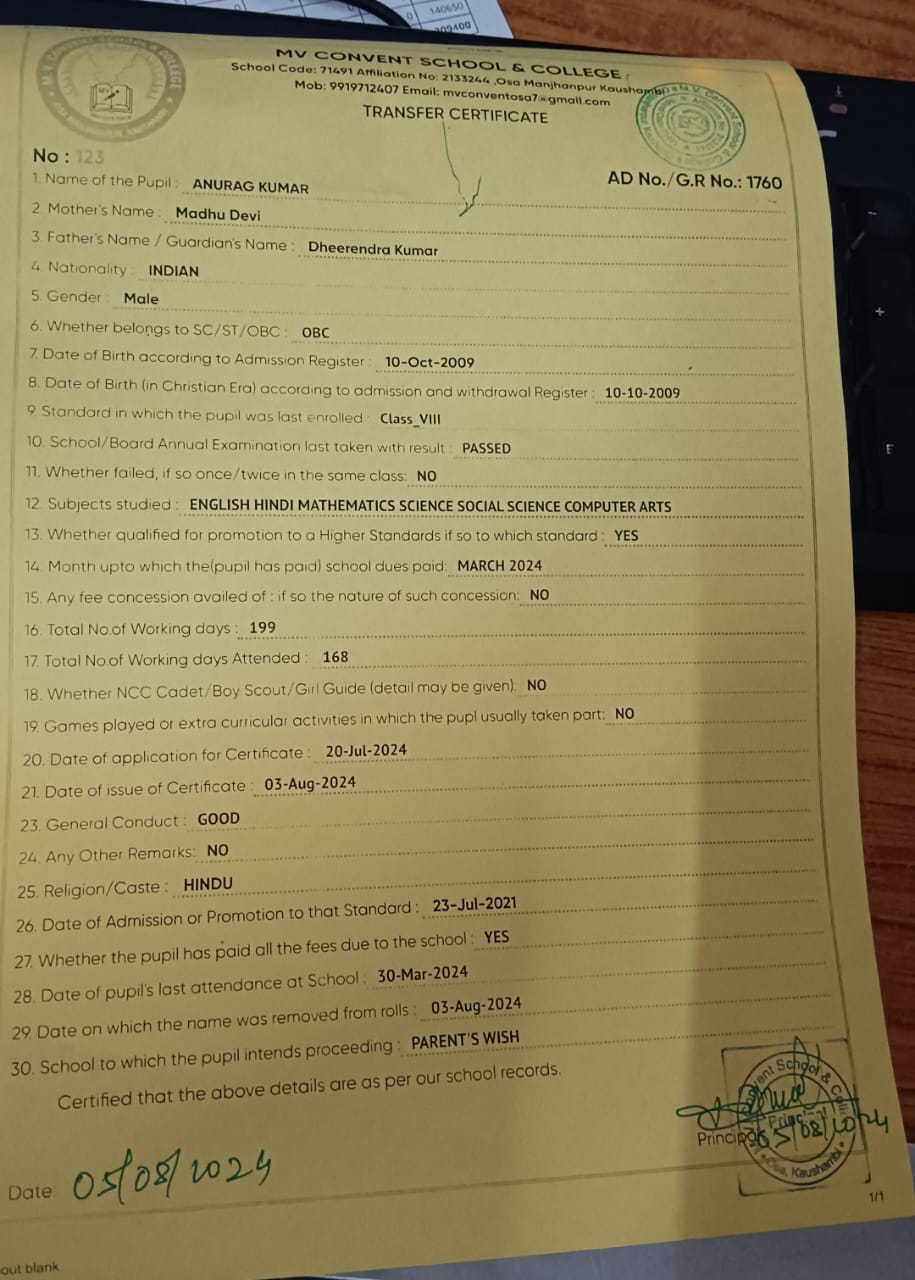 140650
209400
MV CONVENT SCHOOL & COLLEGE
School Code: 71491 Affiliation No: 2133244 ,Osa Manjhanpur Kaushambi
Mob: 9919712407 Email: mvconventosa7@gmail.com
TRANSFER CERTIFICATE
No : 123
AD No./G.R No.: 1760
1. Name of the Pupil : ANURAG KUMAR
2. Mother's Name : Madhu Devi
3. Father's Name / Guardian's Name : Dheerendra Kumar
4. Nationality : INDIAN
5. Gender : Male
6. Whether belongs to SC/ST/OBC : OBC
7. Date of Birth according to Admission Register : 10-Oct-2009
8. Date of Birth (in Christian Era) according to admission and withdrawal Register : 10-10-2009
9. Standard in which the pupil was last enrolled : Class_VIII
10. School/Board Annual Examination last taken with result : PASSED
11. Whether failed, if so once/twice in the same class: NO
12. Subjects studied : ENGLISH HINDI MATHEMATICS SCIENCE SOCIAL SCIENCE COMPUTER ARTS
13. Whether qualified for promotion to a Higher Standards if so to which standard : YES
14. Month upto which the(pupil has paid) school dues paid: MARCH 2024
15. Any fee concession availed of : if so the nature of such concession: NO
16. Total No.of Working days : 199
17. Total No.of Working days Attended : 168
18. Whether NCC Cadet/Boy Scout/Girl Guide (detail may be given): NO
19. Games played or extra curricular activities in which the pupl usually taken part: NO
20. Date of application for Certificate : 20-Jul-2024
21. Date of issue of Certificate : 03-Aug-2024
23. General Conduct : GOOD
24. Any Other Remarks: NO
25. Religion/Caste : HINDU
26. Date of Admission or Promotion to that Standard : 23-Jul-2021
27. Whether the pupil has paid all the fees due to the school : YES
28. Date of pupil's last attendance at School : 30-Mar-2024
29. Date on which the name was removed from rolls : 03-Aug-2024
30. School to which the pupil intends proceeding : PARENT'S WISH
Certified that the above details are as per our school records.
Principal
05/08/2024
Date: 05/08/2024
1/1
out blank